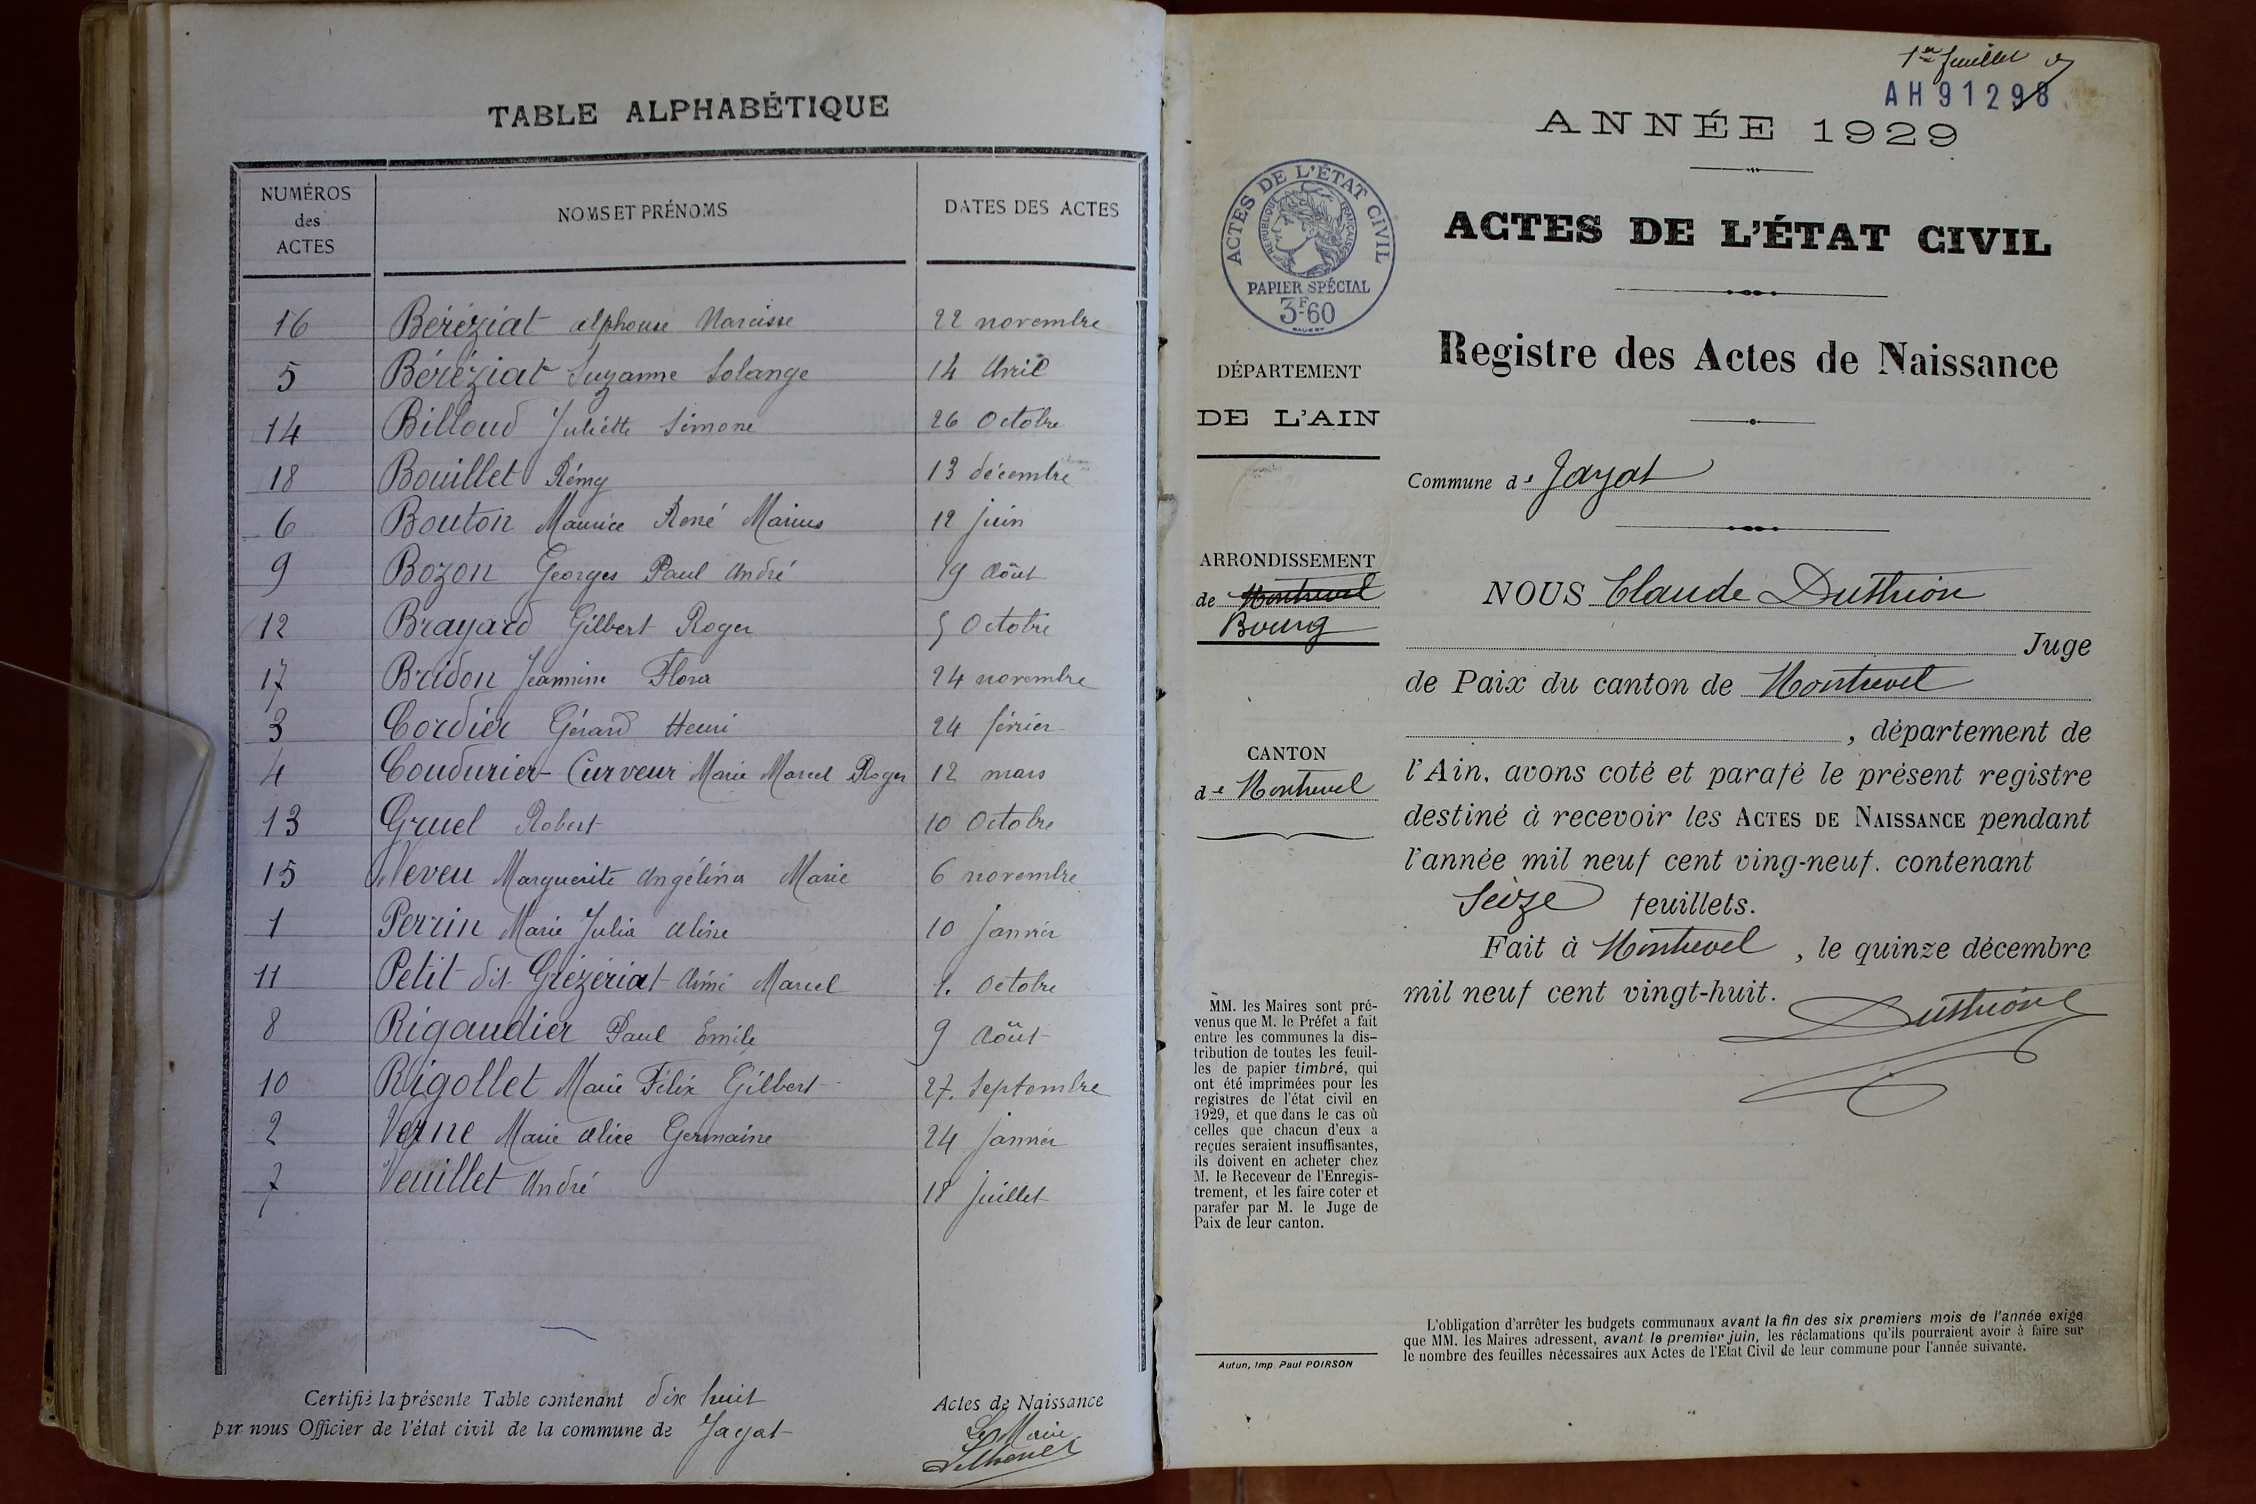 TABLE ALPHABÉTIQUE
NUMÉROS des ACTES
NOMS ET PRÉNOMS
DATES DES ACTES
16 Béréziat Alphonse Narcisse 22 novembre
5 Béréziat Suzanne Solange 14 Avril
14 Billoud Juliette Simone 26 Octobre
18 Bouillet Rémy 13 décembre
6 Bouton Maurice René Marius 12 juin
9 Bozon Georges Paul André 19 Août
12 Brayard Gilbert Roger 5 Octobre
17 Bridon Jeannine Flora 24 novembre
3 Cordier Gérard Henri 24 février
4 Coudurier-Curveur Marie Marcel Roger 12 mars
13 Gruel Robert 10 Octobre
15 Neveu Marguerite Angélina Marie 6 novembre
1 Perrin Marie Julia Aline 10 janvier
11 Petit dit Grézériat Aimé Marcel 1. Octobre
8 Rigaudier Paul Emile 9 Août
10 Rigollet Marie Félix Gilbert 27. Septembre
2 Verne Marie Alice Germaine 24 janvier
7 Veuillet André 18 juillet
Certifié la présente Table contenant dix huit Actes de Naissance
par nous Officier de l'état civil de la commune de Jayat
Le Maire
1er feuillet
AH 91298
ANNÉE 1929
ACTES DE L'ÉTAT CIVIL
RÉPUBLIQUE FRANÇAISE
PAPIER SPÉCIAL
3F60
ACTES DE L'ÉTAT CIVIL
Registre des Actes de Naissance
DÉPARTEMENT
DE L'AIN
Commune de Jayat
ARRONDISSEMENT
de Montrevel
Bourg
CANTON
de Montrevel
NOUS Claude Duthion
Juge
de Paix du canton de Montrevel
, département de
l'Ain, avons coté et parafé le présent registre
destiné à recevoir les ACTES DE NAISSANCE pendant
l'année mil neuf cent ving-neuf. contenant
Seize feuillets.
Fait à Montrevel, le quinze décembre
mil neuf cent vingt-huit.
Duthion
MM. les Maires sont pré-
venus que M. le Préfet a fait
entre les communes la dis-
tribution de toutes les feuil-
les de papier timbré, qui
ont été imprimées pour les
registres de l'état civil en
1929, et que dans le cas où
celles que chacun d'eux a
reçues seraient insuffisantes,
ils doivent en acheter chez
M. le Receveur de l'Enregis-
trement, et les faire coter et
parafer par M. le Juge de
Paix de leur canton.
Autun, Imp. Paul POIRSON
L'obligation d'arrêter les budgets communaux avant la fin des six premiers mois de l'année exige
que MM. les Maires adressent, avant le premier juin, les réclamations qu'ils pourraient avoir à faire sur
le nombre des feuilles nécessaires aux Actes de l'Etat Civil de leur commune pour l'année suivante.